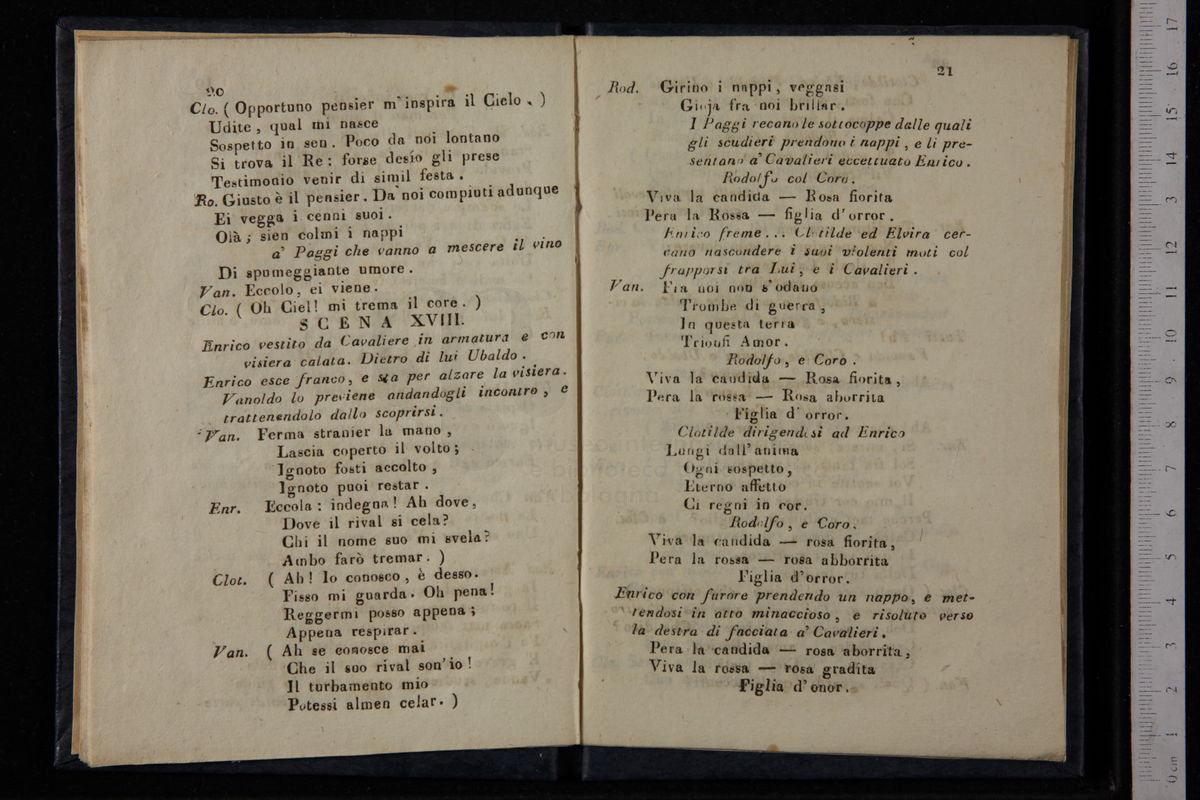 20
Clo. ( Opportuno pensier m'inspira il Cielo. )
Udite, qual mi nasce
Sospetto in sen. Poco da noi lontano
Si trova il Re: forse desío gli prese
Testimonio venir di simil festa.
Ro. Giusto è il pensier. Da noi compiuti adunque
Ei vegga i cenni suoi.
Olà; sien colmi i nappi
a' Paggi che vanno a mescere il vino
Di spumeggiante umore.
Van. Eccolo, ei viene.
Clo. ( Oh Ciel! mi trema il core. )
SCENA XVIII.
Enrico vestito da Cavaliere in armatura e con
visiera calata. Dietro di lui Ubaldo.
Enrico esce franco, e sta per alzare la visiera.
Vanoldo lo previene andandogli incontro, e
trattenendolo dallo scoprirsi.
Van. Ferma stranier la mano,
Lascia coperto il volto;
Ignoto fosti accolto,
Ignoto puoi restar.
Enr. Eccola: indegna! Ah dove,
Dove il rival si cela?
Chi il nome suo mi svela?
Ambo farò tremar. )
Clot. ( Ah! Io conosco, è desso.
Fisso mi guarda. Oh pena!
Reggermi posso appena;
Appena respirar.
Van. ( Ah se conosce mai
Che il suo rival son'io!
Il turbamento mio
Potessi almen celar. )
21
Rod. Girino i nappi, veggasi
Gioja fra noi brillar.
I Paggi recano le sottocoppe dalle quali
gli scudieri prendono i nappi, e li pre-
sentano a' Cavalieri eccettuato Enrico.
Rodolfo col Coro.
Viva la candida — Rosa fiorita
Pera la Rossa — figlia d'orror.
Enrico freme... Clotilde ed Elvira cer-
cano nascondere i suoi violenti moti col
frapporsi tra Lui, e i Cavalieri.
Van. Fra noi non s'odano
Trombe di guerra,
In questa terra
Trionfi Amor.
Rodolfo, e Coro.
Viva la candida — Rosa fiorita,
Pera la rossa — Rosa aborrita
Figlia d'orror.
Clotilde dirigendosi ad Enrico
Lungi dall'anima
Ogni sospetto,
Eterno affetto
Ci regni in cor.
Rodolfo, e Coro.
Viva la candida — rosa fiorita,
Pera la rossa — rosa abborrita
Figlia d'orror.
Enrico con furore prendendo un nappo, e met-
tendosi in atto minaccioso, e risoluto verso
la destra di facciata a' Cavalieri.
Pera la candida — rosa aborrita,
Viva la rossa — rosa gradita
Figlia d'onor.